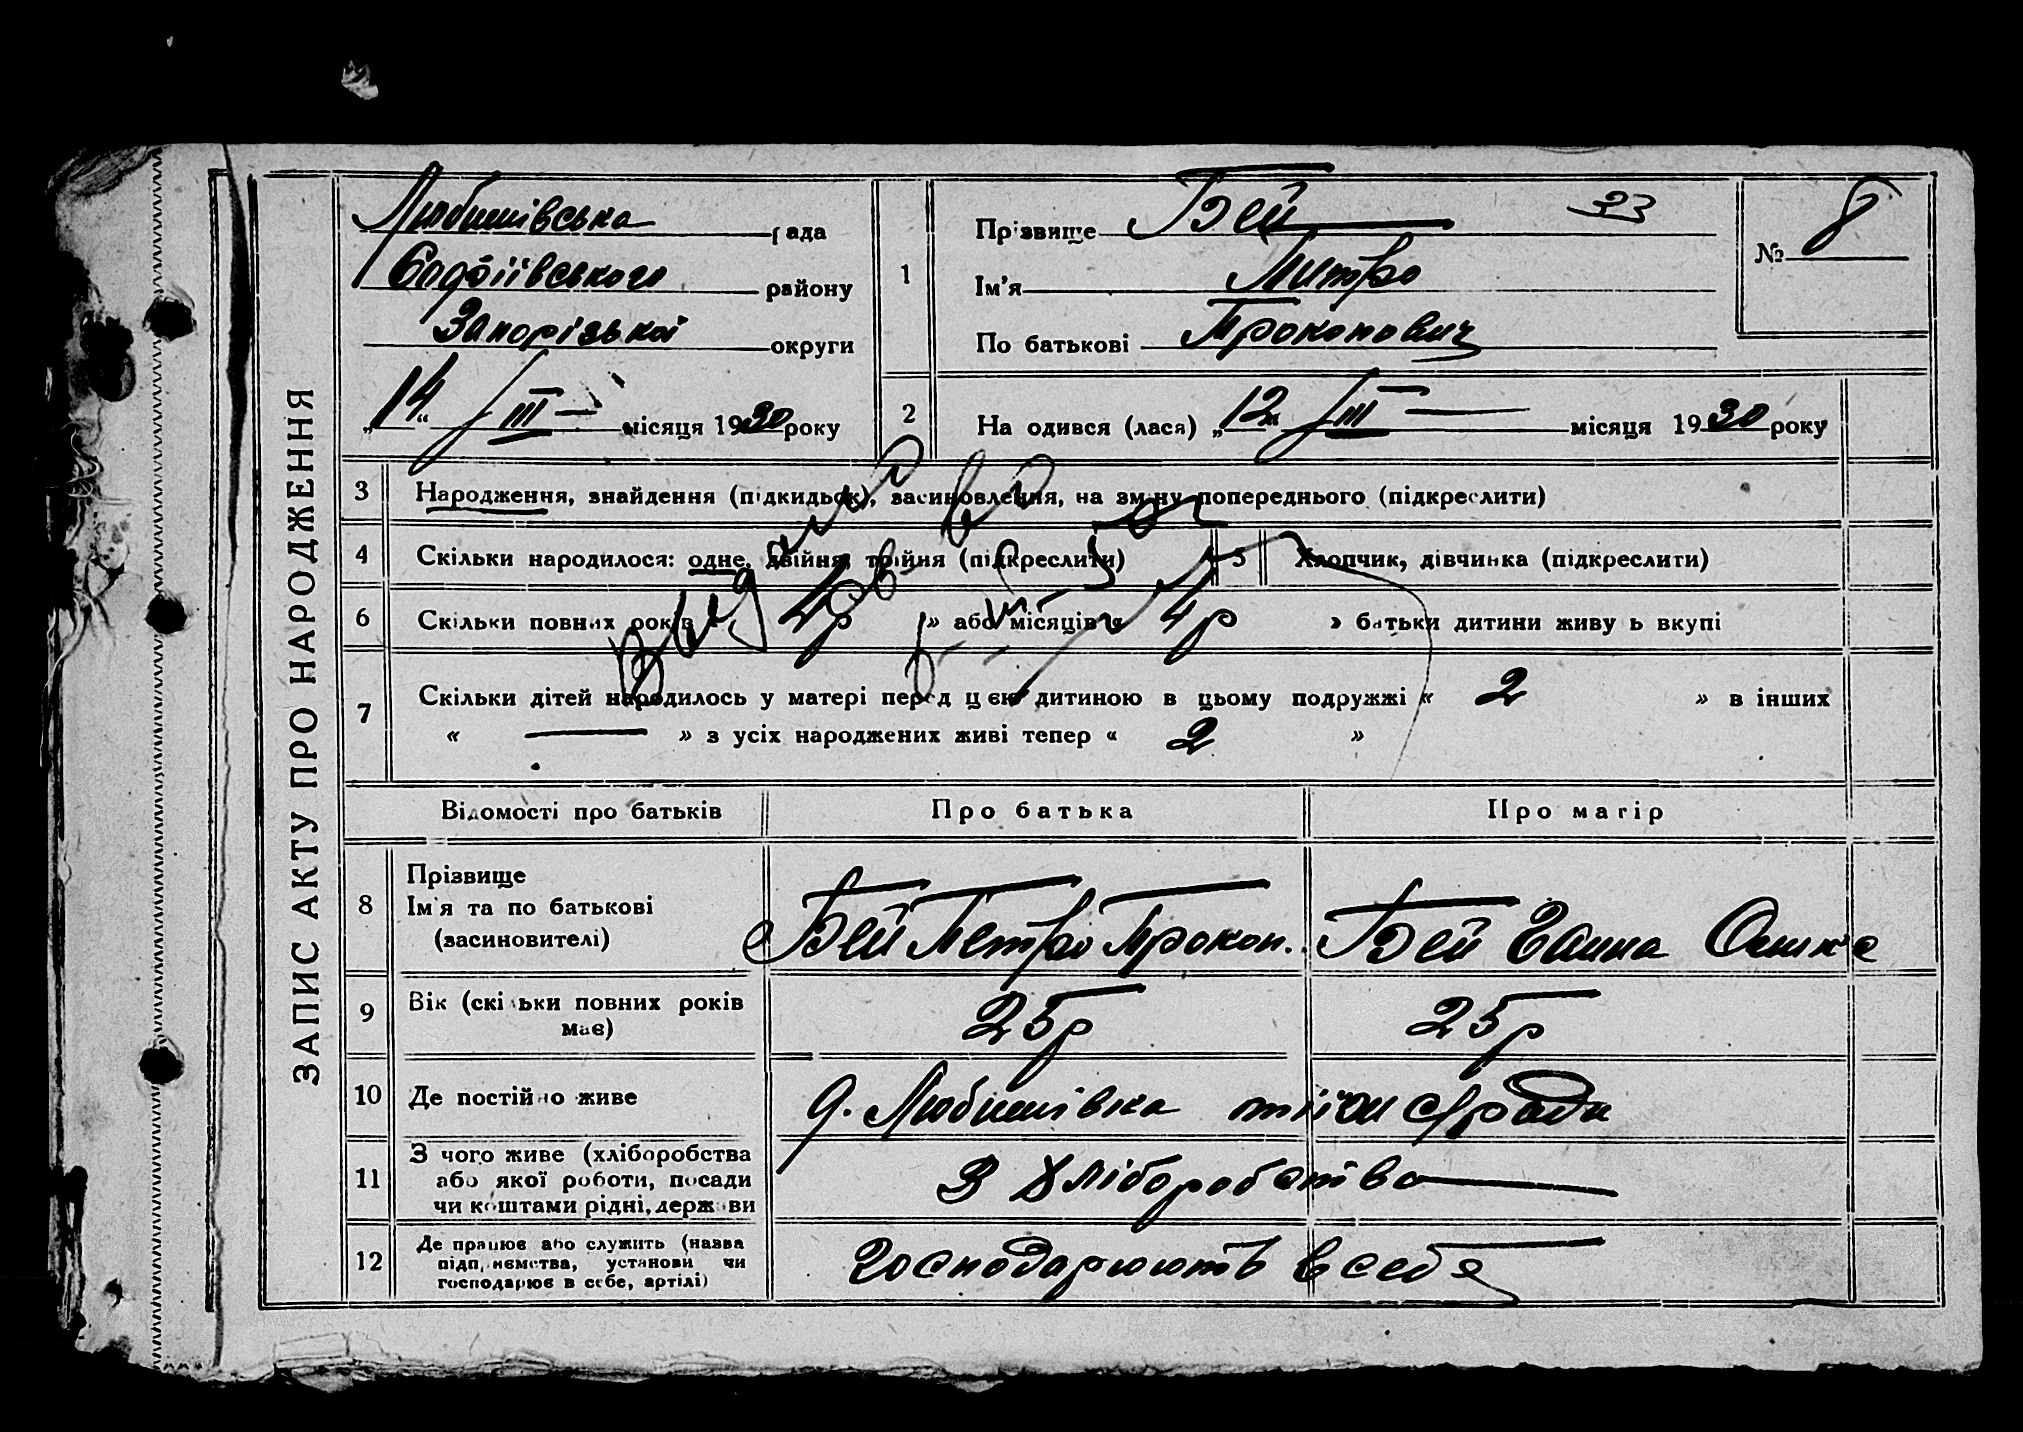 ЗАПИС АКТУ ПРО НАРОДЖЕННЯ
Любимівська рада
Софіївського району
Запорізької округи
„14“ III місяця 1930 року
1
Прізвище Бей
33
Ім'я Митро
По батькові Прокопович
№ 8
2
На одився (лася) „12“ III місяця 1930 року
3 Народження, знайдення (підкидьок), засиновлення, на зміну попереднього (підкреслити)
4 Скільки народилося: одне, двійня, трійня (підкреслити) 5 Хлопчик, дівчинка (підкреслити)
6 Скільки повних років 4р » або місяців « 4р » батьки дитини живу ь вкупі
7 Скільки дітей народилось у матері перед цією дитиною в цьому подружжі « 2 » в інших
« — » з усіх народжених живі тепер « 2 »
Відомості про батьків Про батька Про матір
8 Прізвище
Ім'я та по батькові
(засиновителі)
Бей Петро Прокоп. Бей Ганна
9 Вік (скільки повних років
має)
25р 25р
10 Де постійно живе
д. Любимівка
11 З чого живе (хліборобства
або якої роботи, посади
чи коштами рідні, держави
З хліборобства
12 Де працює або служить (назва
підприємства, установи чи
господарює в себе, артілі)
Господарюють в себе